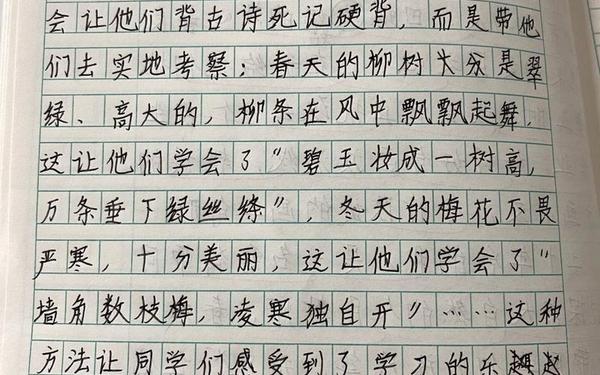 会让他们背古诗死记硬背，而是带他
们去实地考察：春天的柳树十分是翠
绿、高大的，柳条在风中飘飘起舞，
这让他们学会了“碧玉妆成一树高，
万条垂下绿丝绦”，冬天的梅花不畏
严寒，十分美丽，这让他们学会了“
墙角数枝梅，凌寒独自开”……这种
方法让同学们感受到了学习的乐趣